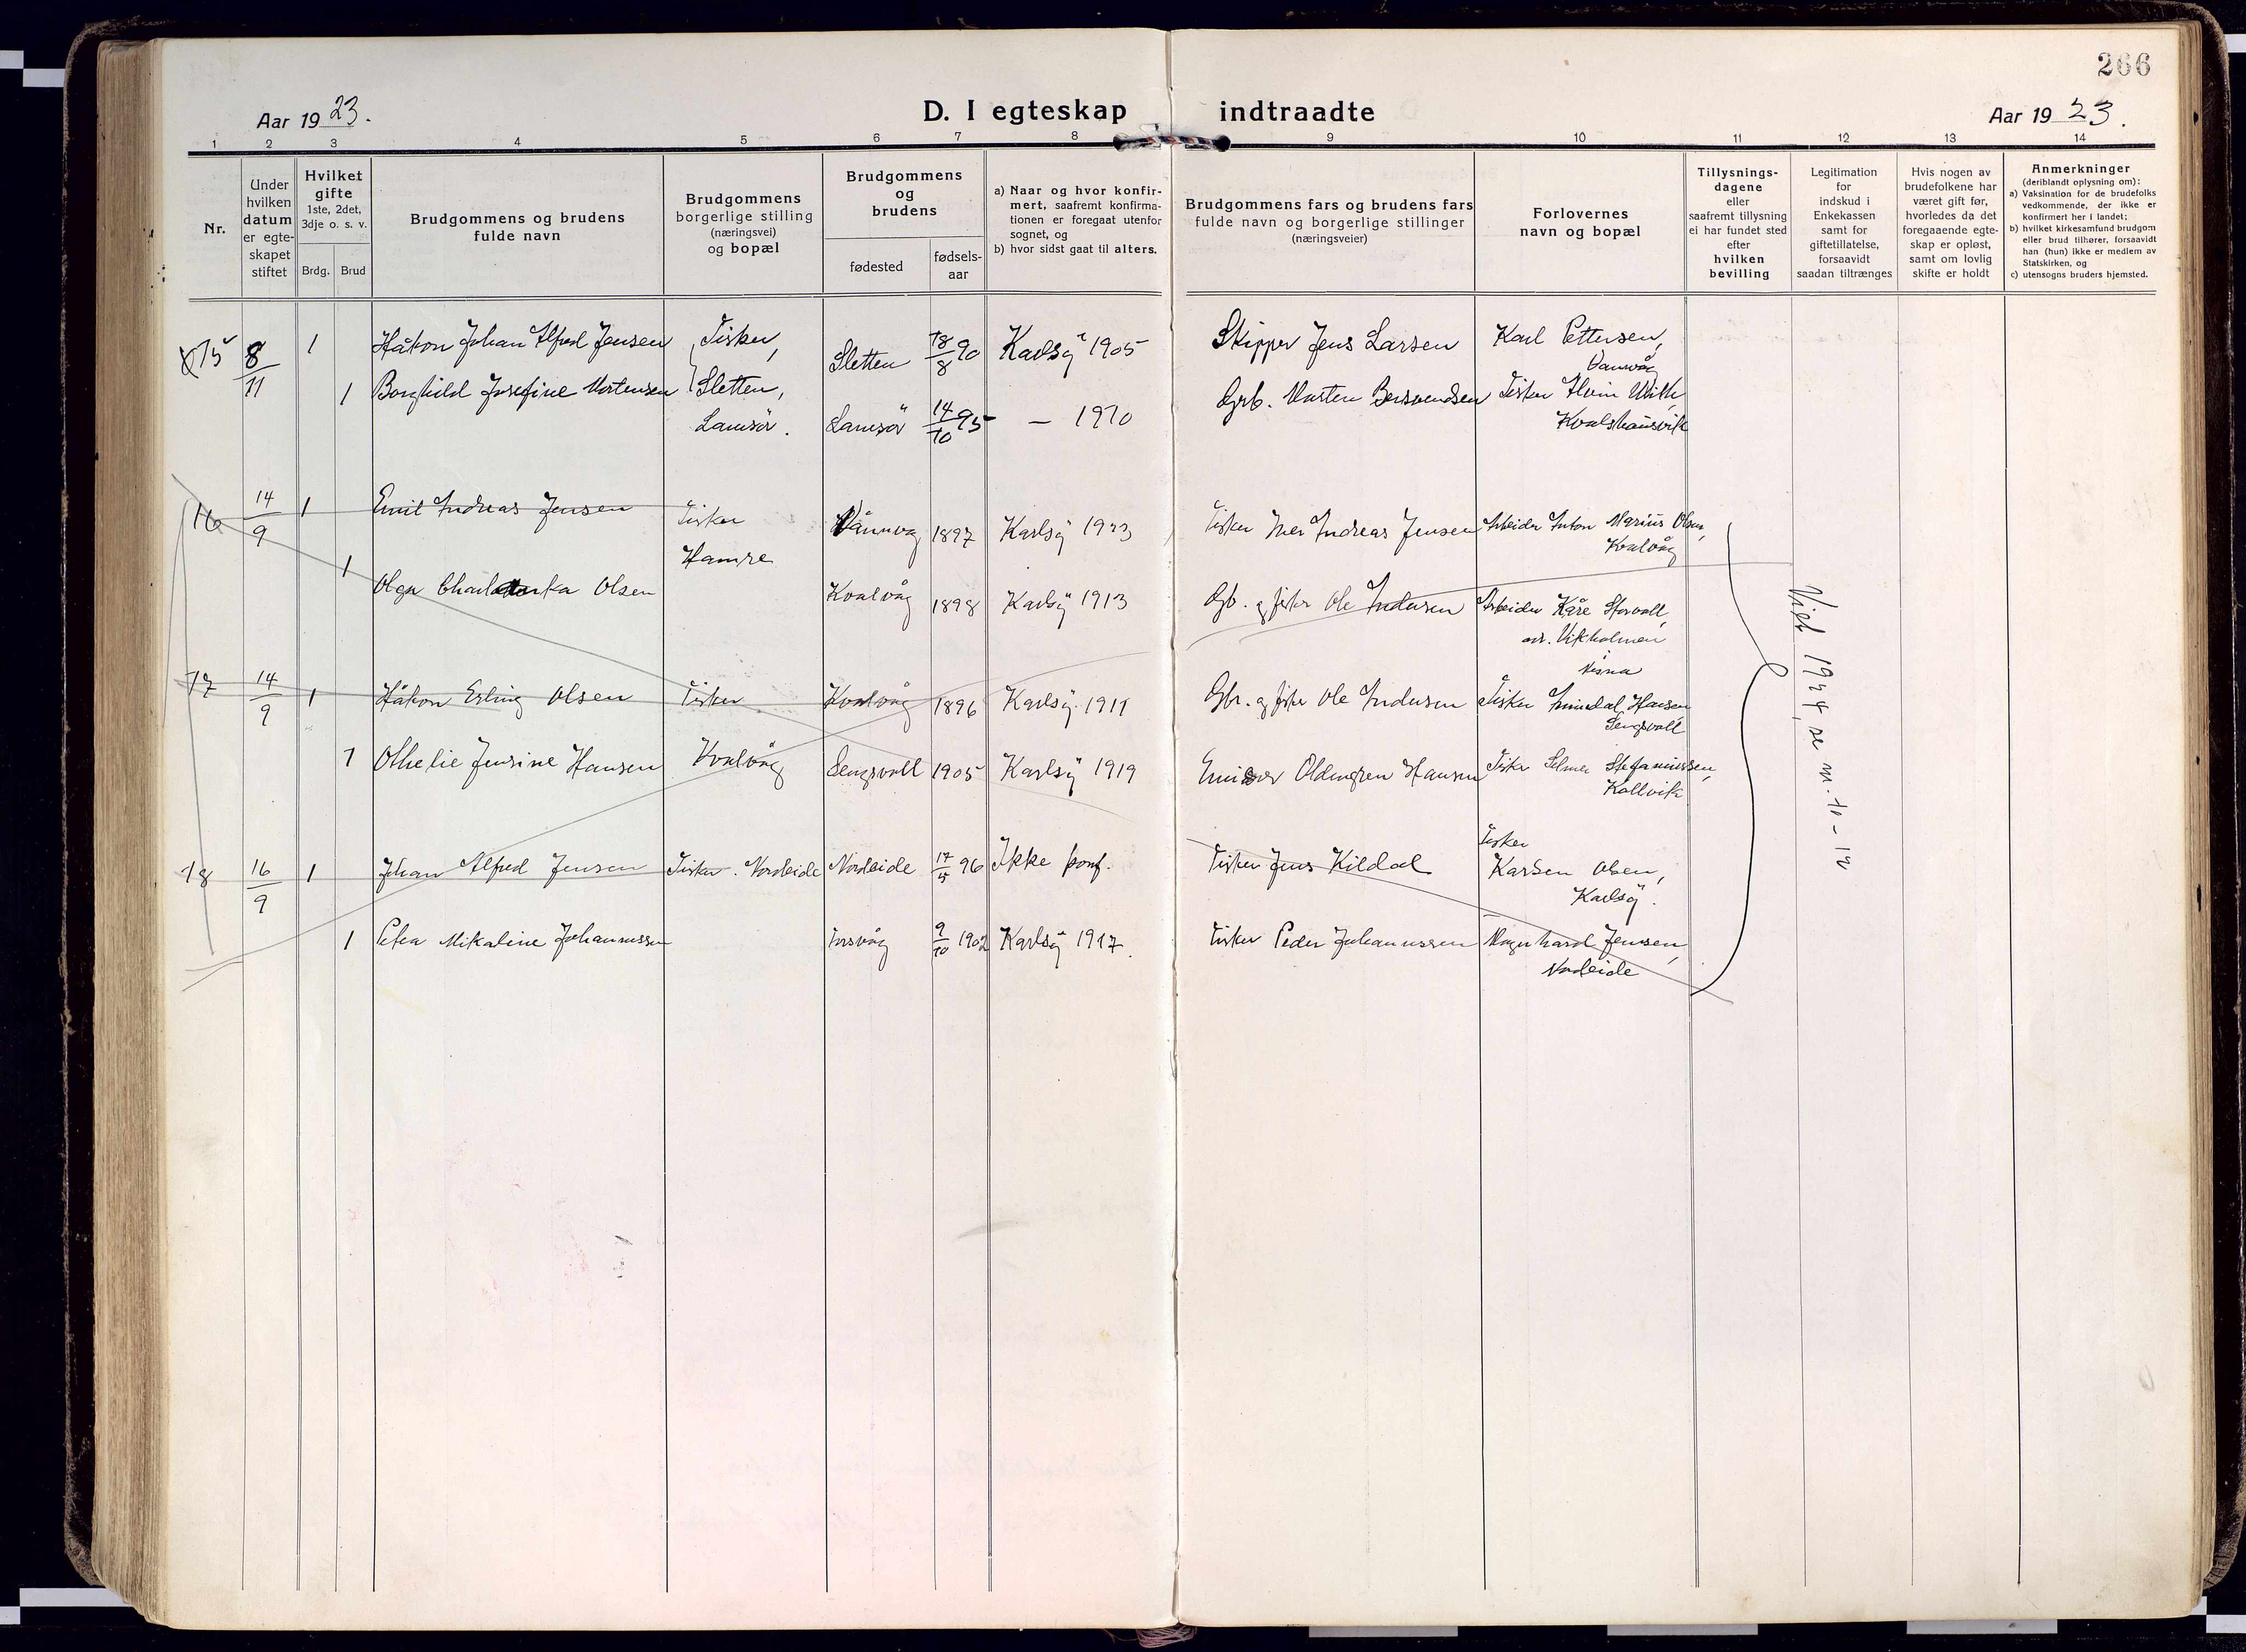 266
Aar 1923.
D. I egteskap indtraadte
Aar 1923.
1 2 3 4 5 6 7 8 9 10 11 12 13 14
Nr.
Under
hvilken
datum
er egte-
skapet
stiftet
Hvilket
gifte
1ste, 2det,
3dje o. s. v.
Brdg. Brud
Brudgommens og brudens
fulde navn
Brudgommens
borgerlige stilling
(næringsvei)
og bopæl
Brudgommens
og
brudens
fødested
fødsels-
aar
a) Naar og hvor konfir-
mert, saafremt konfirma-
tionen er foregaat utenfor
sognet, og
b) hvor sidst gaat til alters.
Brudgommens fars og brudens fars
fulde navn og borgerlige stillinger
(næringsveier)
Forlovernes
navn og bopæl
Tillysnings-
dagene
eller
saafremt tillysning
ei har fundet sted
efter
hvilken
bevilling
Legitimation
for
indskud i
Enkekassen
samt for
giftetillatelse,
forsaavidt
saadan tiltrænges
Hvis nogen av
brudefolkene har
været gift før,
hvorledes da det
foregaaende egte-
skap er opløst,
samt om lovlig
skifte er holdt
Anmerkninger
(deriblandt oplysning om):
a) Vaksination for de brudefolks
vedkommende, der ikke er
konfirmert her i landet;
b) hvilket kirkesamfund brudgom
eller brud tilhører, forsaavidt
han (hun) ikke er medlem av
Statskirken, og
c) utensogns bruders hjemsted.
15 8/11 1 Håkon Johan Alfred Jensen Fisker, Sletten 18/8 90 Karlsö 1905 Skipper Jens Larsen Karl Pettersen,
Vannvåg
1 Borghild Josefine Mortensen Sletten, Grb. Morten Bersvendsen Fisker
Lanesör. Lanesör 14/10 95 — 1910 Kvalshausvik
16 14/9 1 Emil Andreas Jensen Fisker Vannvåg 1897 Karlsö 1913 Fisker Andreas Jensen Arbeider Anton Marius Olsen,
Hamre Kvalvåg
1 Olga Olsen Kvalvåg 1898 Karlsö 1913 Gb. og fisker Ole Andersen Arbeider Kåre Storvoll,
adr. Vikholmen
Nesna
17 14/9 1 Håkon Erling Olsen Fisker Kvalvåg 1896 Karlsö 1911 Gbr. og fisker Ole Andersen Fisker Hansen
Sengsvoll
1 Othelie Jensine Hansen Kvalvåg Sengsvoll 1905 Karlsö 1919 Hansen Fisker Selmer Stefanussen,
Kollvik
18 16/9 1 Johan Alfred Jensen Fisker. Nordeide Nordeide 17/5 96 Ikke konf. Fisker Jens Kildal Fisker
Karsen Olsen,
Karlsö.
1 Petra Mikaline Johannessen Torsvåg 9/10 1902 Karlsö 1917. Fisker Peder Johannessen Magnhard Jensen,
Nordeide
Viet 1924, se nr. 10-12